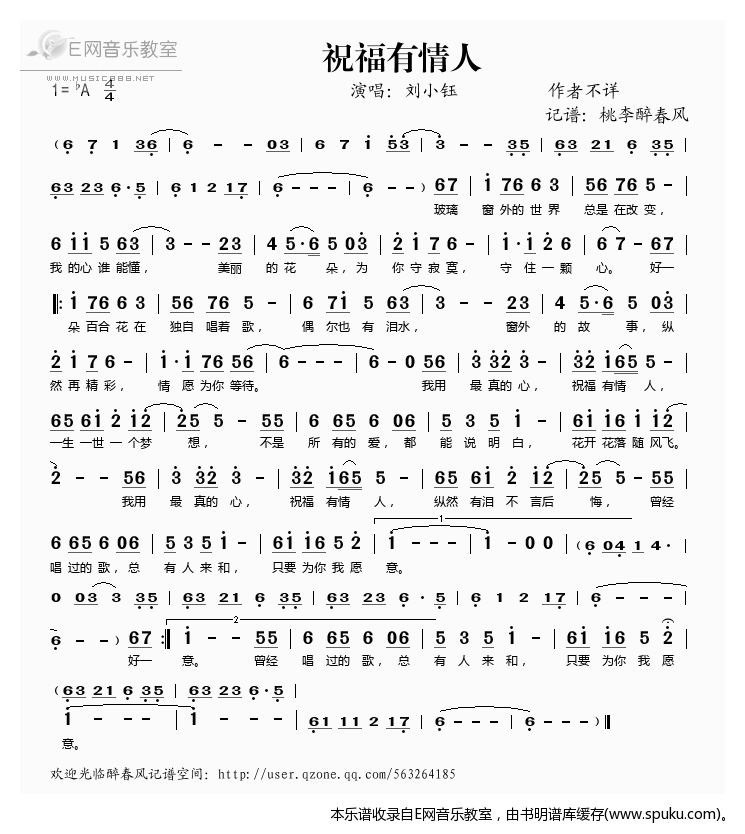 E网音乐教室
www.MUSIC888.NET
祝福有情人
1=♭A 4/4
演唱：刘小钰
作者不详
记谱：桃李醉春风
（6 7 1 36 | 6 - - 03 | 6 7 1 53 | 3 - - 35 | 63 21 6 35 |
63 23 6·5 | 6 1 2 17 | 6 - - - | 6 - - ）67 | 1 76 6 3 | 56 76 5 - |
玻璃 窗外的世界 总是在改变，
6 11 5 63 | 3 - - 23 | 4 5·6 5 03 | 2 1 7 6 - | 1·1 2 6 | 6 7 - 67 |
我的心谁能懂， 美丽 的花朵，为 你守寂寞， 守住一颗 心。 好一
‖: 1 76 6 3 | 56 76 5 - | 6 71 5 63 | 3 - - 23 | 4 5·6 5 03 |
朵百合花在 独自唱着歌， 偶尔也有泪水， 窗外 的故事，纵
2 1 7 6 - | 1·1 76 56 | 6 - - - | 6 - 0 56 | 3 32 3 - | 32 165 5 - |
然再精彩， 情愿为你等待。 我用 最真的心， 祝福有情人，
65 61 2 12 | 25 5 - 55 | 6 65 6 06 | 5 3 5 1 - | 61 16 1 12 |
一生一世一个梦 想， 不是 所有的爱，都 能说明白， 花开花落随风飞。
2 - - 56 | 3 32 3 - | 32 165 5 - | 65 61 2 12 | 25 5 - 55 |
我用 最真的心， 祝福有情人， 纵然有泪不言后 悔， 曾经
6 65 6 06 | 5 3 5 1 - | 61 16 5 2 | 1 - - - | 1 - 0 0 | （6 04 1 4· |
1
唱过的歌，总 有人来和， 只要为你我愿 意。
0 03 3 35 | 63 21 6 35 | 63 23 6·5 | 6 1 2 17 |
6 - - ）67 :‖ 1 - - 55 | 6 65 6 06 | 5 3 5 1 - | 61 16 5 2 |
2
好一 意。 曾经 唱过的歌，总 有人来和， 只要为你我愿
（63 21 6 35 | 63 23 6·5 |
1 - - - | 1 - - - | 61 11 2 17 | 6 - - - | 6 - - - ）‖
意。
欢迎光临醉春风记谱空间：http://user.qzone.qq.com/563264185
本乐谱收录自E网音乐教室，由书明谱库缓存(www.spuku.com)。